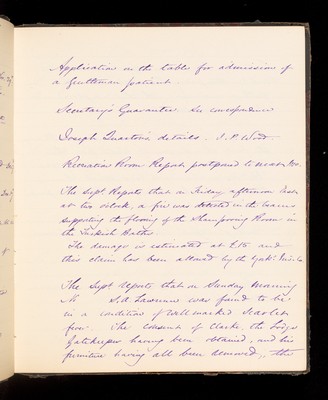 Application on the table for admission of
a gentleman patient.
Secretary's Guarantee. See correspondence
Joseph details. J. P. Wood.
Recreation Room Report postponed to next
The Supt Reports that on Friday afternoon last
at two o'clock, a fire was detected in the beams
supporting the flooring of the Shampooing Room in
the Turkish Baths.
The damage is estimated at £15 and
this claim has been allowed by the
The Supt reports that on Sunday morning
S.A. Lawrence was found to be
in a condition of well marked Scarlet
fever. The consent of Clarke, the Lodge
Gatekeeper having been obtained, and his
furniture having all been removed, the